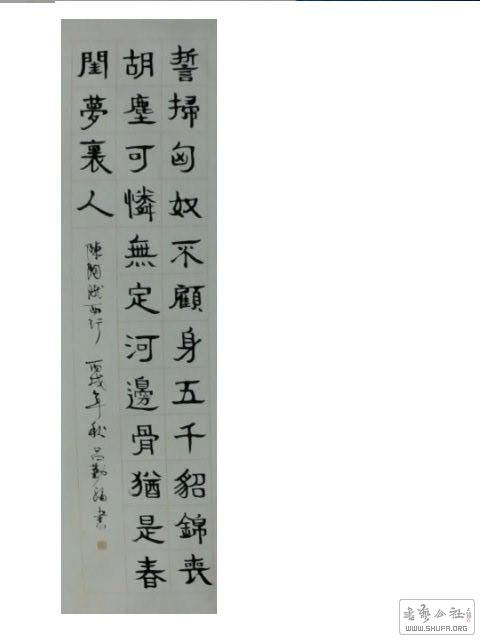 誓掃匈奴不顧身五千貂錦喪
胡塵可憐無定河邊骨猶是春
閨夢裏人
陳陶隴西行 丙戌年秋呂勤福書
書藝公社
WWW.SHUFA.ORG